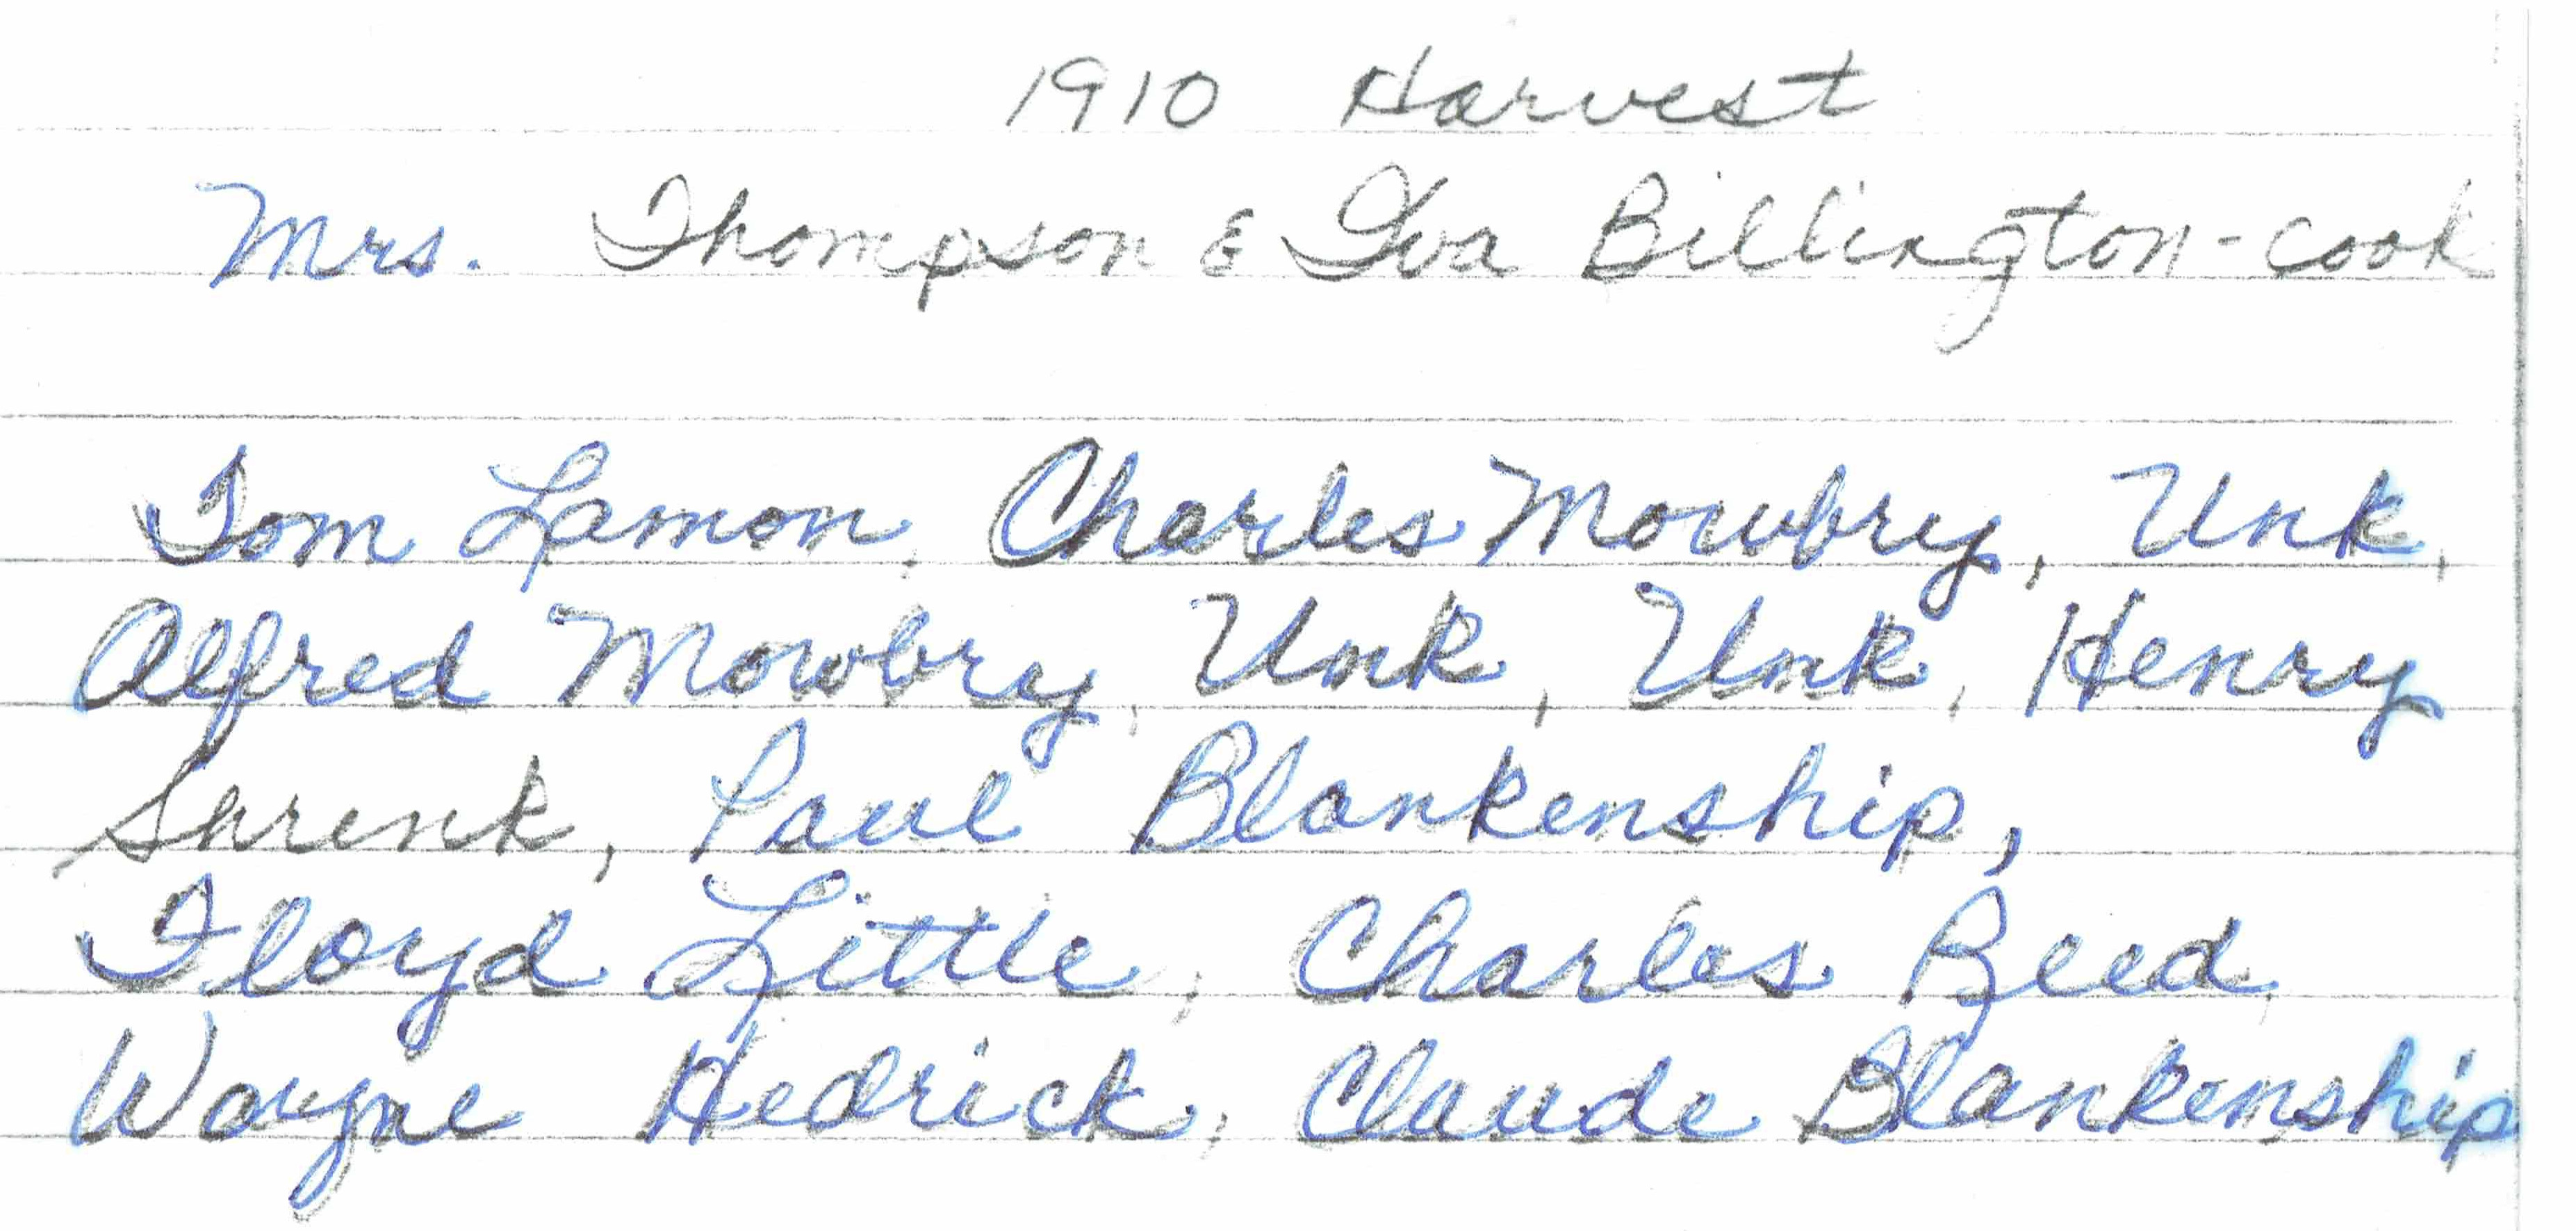 1910 Harvest
Mrs. Thompson & Iva Billington-cook
Tom Lamon, Charles Mowbry, Unk,
Alfred Mowbry, Unk, Unk, Henry
Shrenk, Paul Blankenship,
Floyd Little, Charles Reed,
Wayne Hedrick, Claude Blankenship